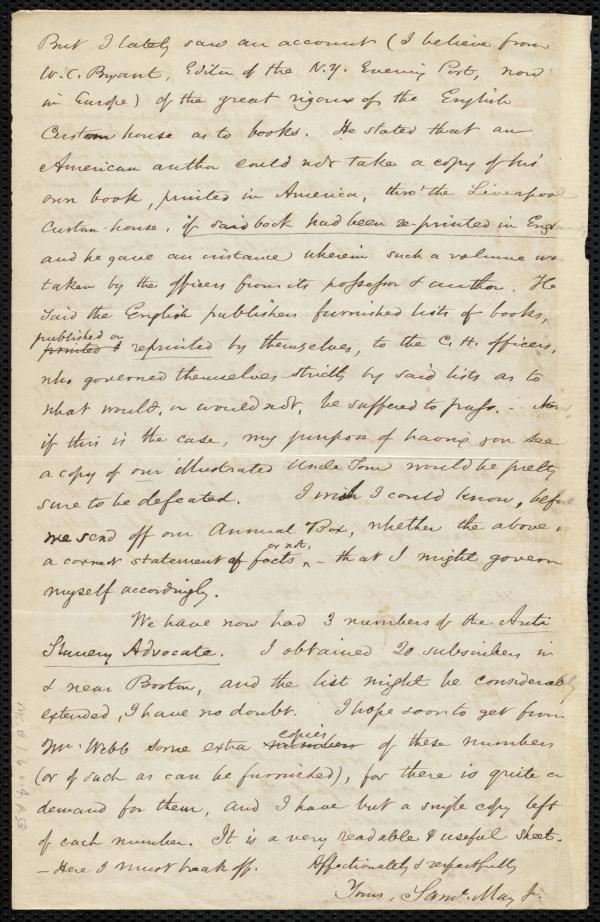 But I lately saw an account (I believe from
W. C. Bryant, Editor of the N.Y. Evening Post, now
in Europe) of the great rigour of the English
Custom house as to books. He stated that an
American author could not take a copy of his
own book, printed in America, thro' the Liverpool
Custom-house, if said book had been re-printed in Eng
and he gave an instance wherein such a volume was
taken by the officers from its possessor & author. He
said the English publishers furnished lists of books,
published or
printed & reprinted by themselves, to the C. H. officers,
who governed themselves strictly by said lists as to
what would, or would not, be suffered to pass. - Now,
if this is the case, my purpose of having you see
a copy of our illustrated Uncle Tom would be pretty
sure to be defeated. I wish I could know, before
we send off our Annual Box, whether the above is
or not,
a correct statement of facts ^ - that I might govern
myself accordingly.
We have now had 3 numbers of the Anti
Slavery Advocate. I obtained 20 subscribers in
& near Boston, and the list might be considerably
extended, I have no doubt. I hope soon to get from
copies
Mr. Webb some extra numbers of these numbers
(or of such as can be furnished), for there is quite a
demand for them, and I have but a single copy left
of each number. It is a very readable & useful sheet.
- Here I must break off. Affectionately & respectfully
Yours, Saml. May Jr.